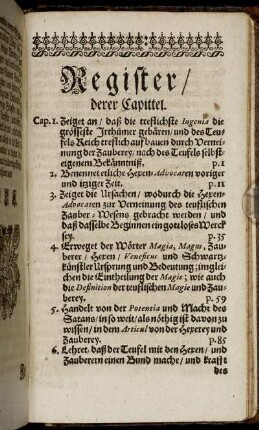 Register/
derer Capittel.
Cap. 1. Zeiget an / daß die treflichste Ingenia die
grösseste Irthümer gebären / und des Teu-
fels Reich treflich auf bauen durch Vernei-
nung der Zauberey / nach des Teufels selbst-
eigenem Bekäntniß. p. 1
2. Benennet etliche Hexen-Advocaten voriger
und itziger Zeit. p. 11
3. Zeiget die Ursachen / wodurch die Hexen-
Advocaten zur Verneinung des teuflischen
Zauber-Wesens gebracht werden / und
daß dasselbe Beginnen ein gotloses Werck
sey. p. 35
4. Erweget der Wörter Magia, Magus, Zau-
berer / Hexen / Veneficus und Schwartz-
künstler Ursprung und Bedeutung; imglei-
chen die Eintheilung der Magie; wie auch
die Definition der teuflischen Magie und Zau-
berey. p. 59
5. Handelt von der Potentia und Macht des
Satans / in so weit / als nöhtig ist davon zu
wissen / in dem Articul von der Hexerey und
Zauberey. p. 85
6. Lehret / daß der Teufel mit den Hexen / und
Zauberern einen Bund mache / und krafft
des